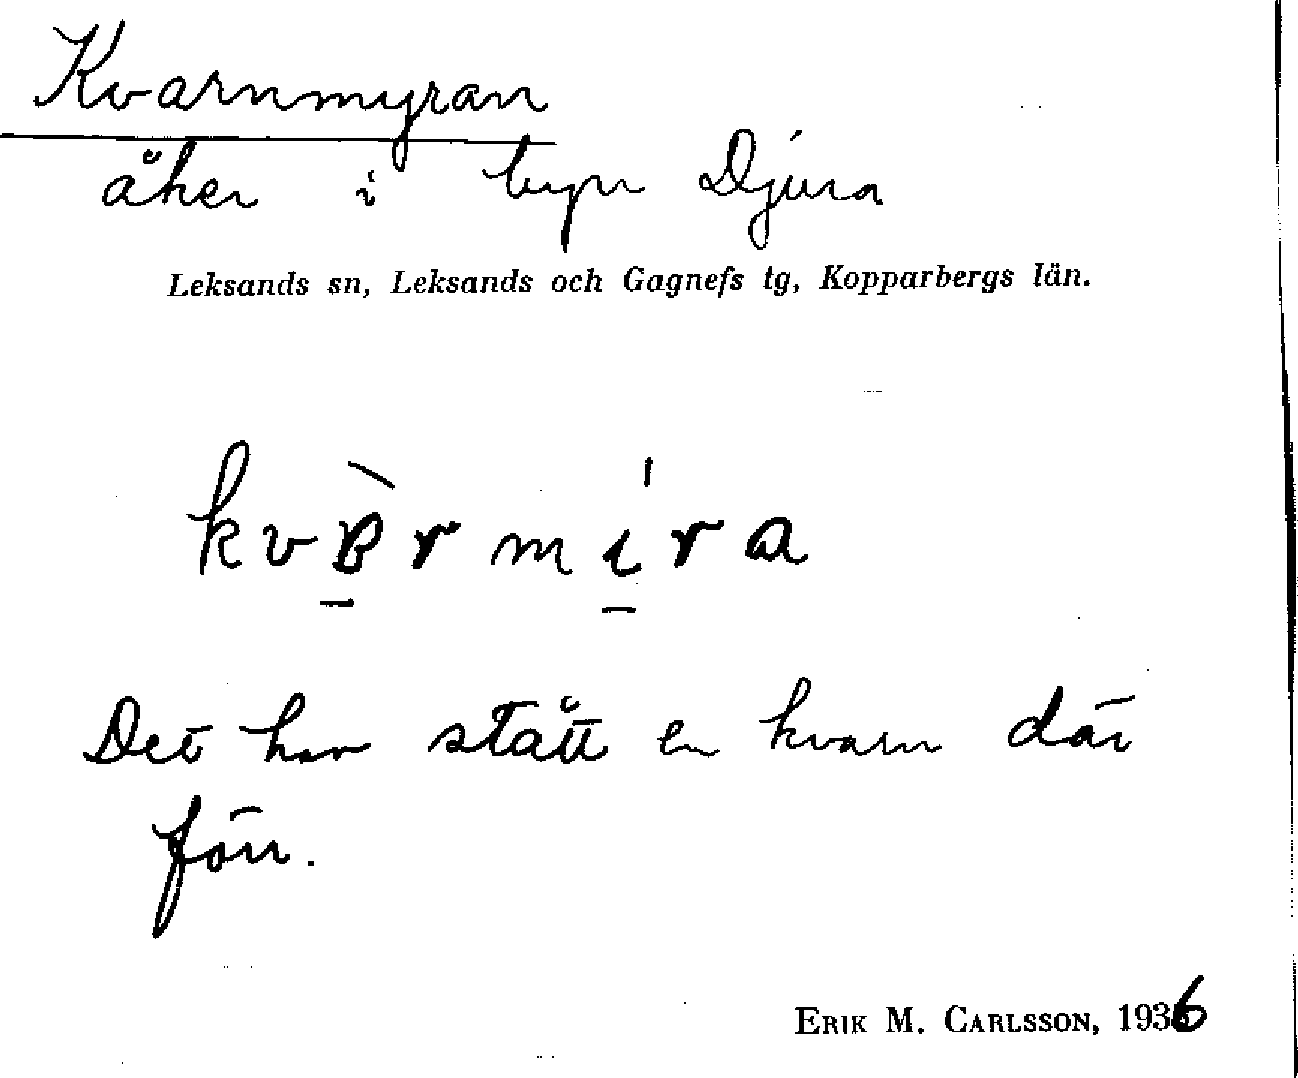 Kvarnmyran
åker i byn Djura
Leksands sn, Leksands och Gagnefs tg, Kopparbergs län.
Det har stått en kvarn där
förr.
ERIK M. CARLSSON, 1936